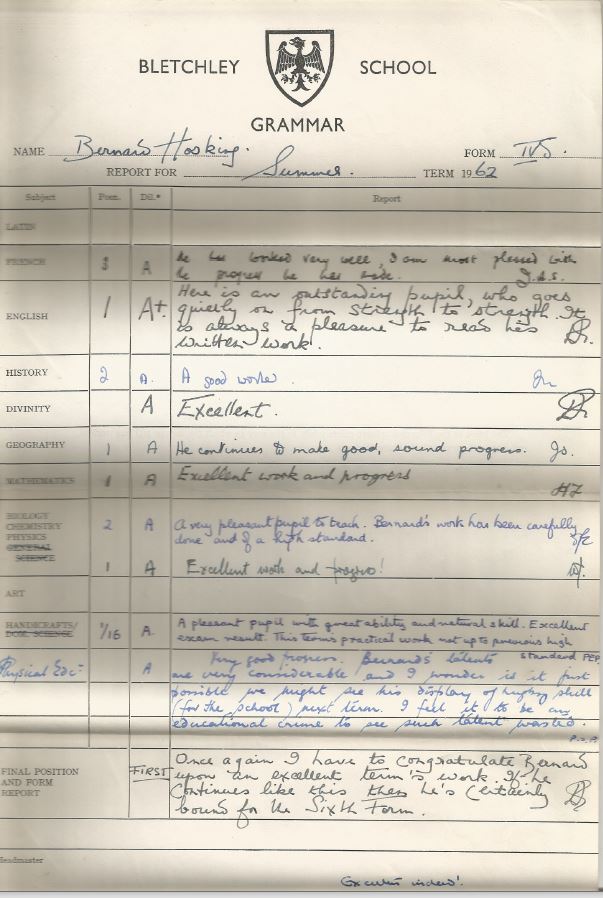 BLETCHLEY SCHOOL
GRAMMAR
NAME Bernard Hosking. FORM IVS.
REPORT FOR Summer. TERM 1962
Subject Posn. Dil.* Report
LATIN
FRENCH 3 A He has worked very well, I am most pleased with
the progress he has made. J.A.S.
ENGLISH 1 A+. Here is an outstanding pupil, who goes
quietly on from strength to strength. It
is always a pleasure to read his
written work.
HISTORY 2 A. A good worker.
DIVINITY A Excellent.
GEOGRAPHY 1 A He continues to make good, sound progress. Jo.
MATHEMATICS 1 A Excellent work and progress
HJ
BIOLOGY
CHEMISTRY 2 A A very pleasant pupil to teach. Bernard's work has been carefully
PHYSICS done and of a high standard.
GENERAL
SCIENCE 1 A Excellent work and progress!
ART
HANDICRAFTS/ 1/16 A. A pleasant pupil with great ability and natural skill. Excellent
DOM. SCIENCE exam result. This terms practical work not up to previous high
standard PEP
Physical Edc- A Very good progress. Bernard's talents
are very considerable and I wonder is it just
possible we might see his display of rugby skill
(for the school) next term. I feel it to be an
educational crime to see such talent wasted.
FINAL POSITION AND FORM REPORT FIRST Once again I have to congratulate Bernard
upon an excellent term's work. If he
continues like this then he's certainly
bound for the Sixth Form.
Headmaster
Excellent indeed!